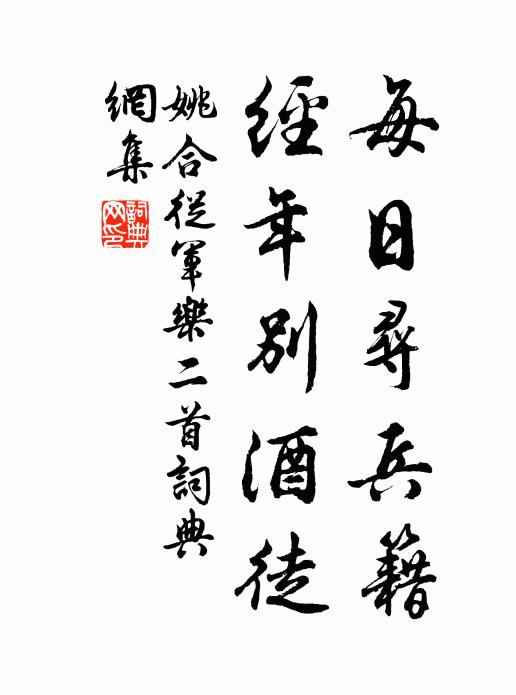 每日尋兵籍
經年別酒徒
姚合從軍樂二首詞典
網集
詞典
网印